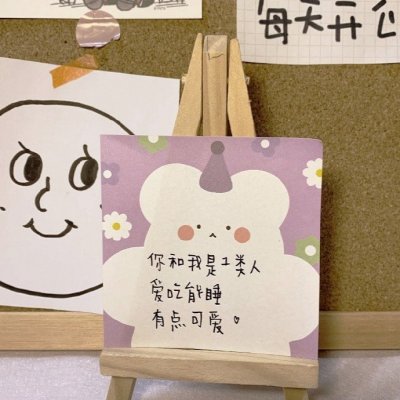 每天开心
你和我是1类人
爱吃能睡
有点可爱♡